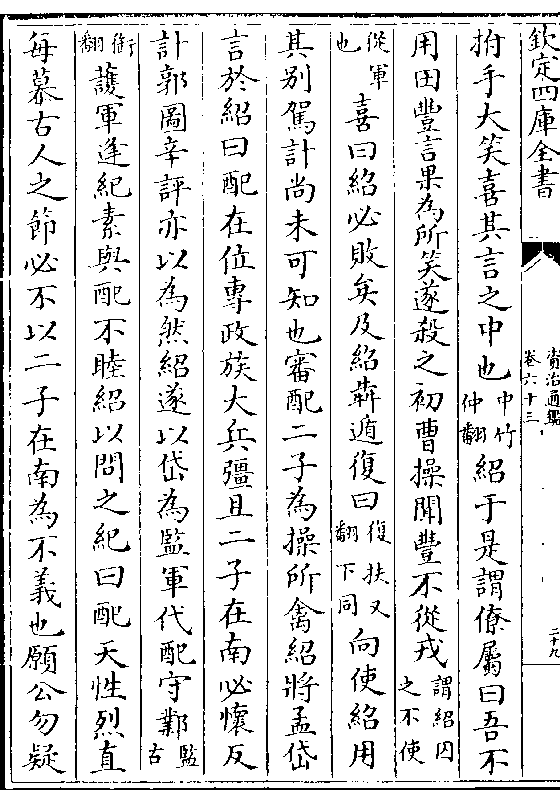 欽定四庫全書
資治通鑑
卷六十三
二十九
拊手大笑喜其言之中也中竹仲翻紹于是謂僚屬曰吾不
用田豐言果為所笑遂殺之初曹操聞豐不從戎謂紹囚之不使
從軍也喜曰紹必敗矣及紹奔遁復曰復扶又翻下同向使紹用
其别駕計尚未可知也審配二子為操所禽紹將孟岱
言於紹曰配在位專政族大兵彊且二子在南必懷反
計郭圖辛評亦以為然紹遂以岱為監軍代配守鄴監古
銜翻護軍逄紀素與配不睦紹以問之紀曰配天性烈直
每慕古人之節必不以二子在南為不義也願公勿疑